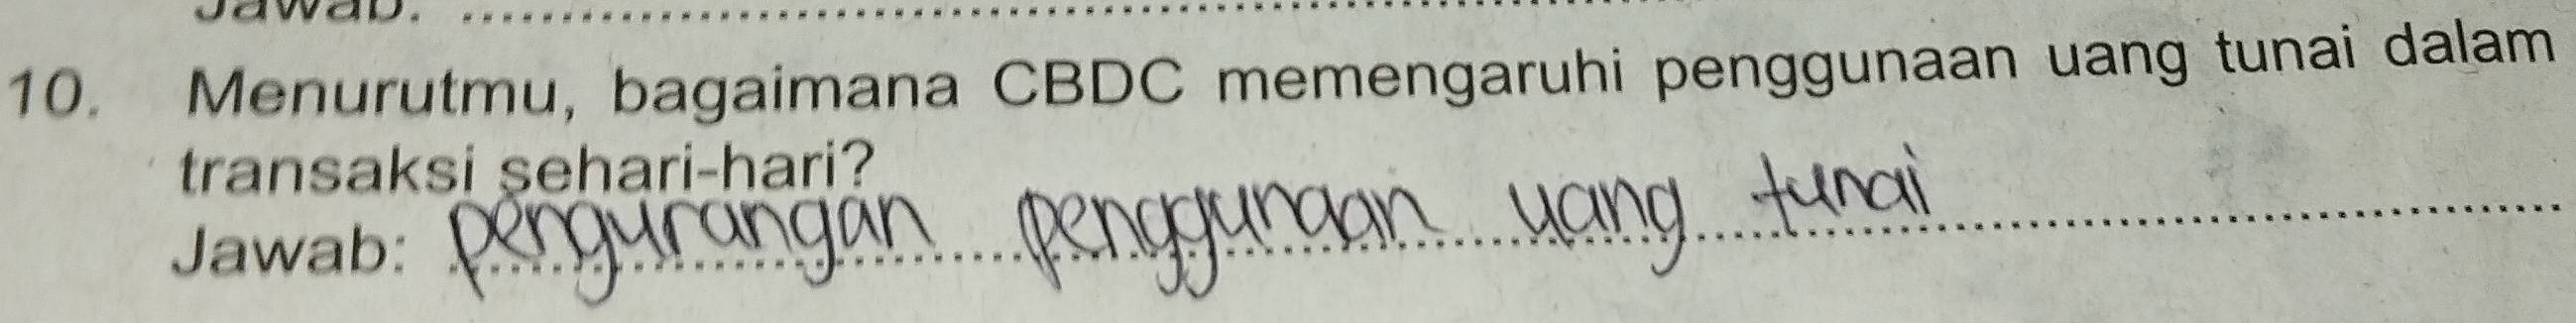 Jawab: ........................................................
10. Menurutmu, bagaimana CBDC memengaruhi penggunaan uang tunai dalam
transaksi sehari-hari?
Jawab: pengurangan penggunaan uang tunai ........................